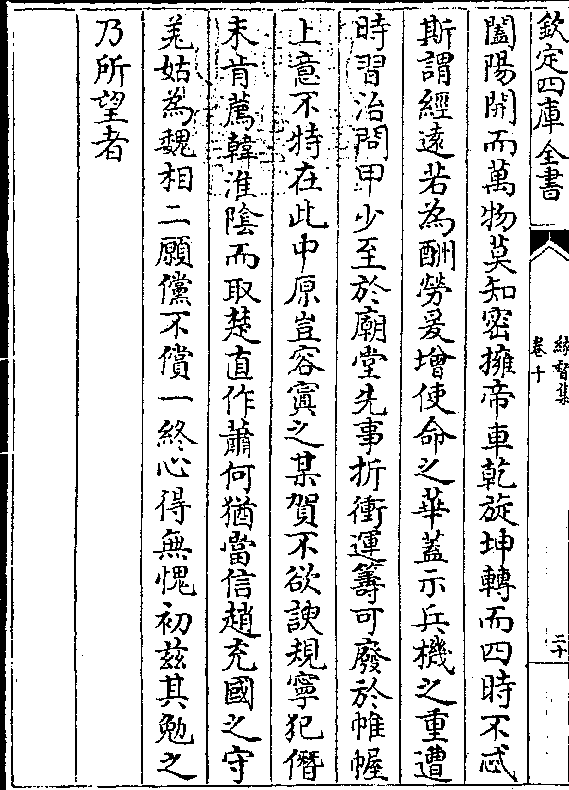 欽定四庫全書
縁督集
卷十
二十
闔陽開而萬物莫知密擁帝車乾旋坤轉而四時不忒
斯謂經遠若為酬勞爰增使命之華蓋示兵機之重遭
時習治問甲少至於廟堂先事折衝運籌可廢於帷幄
上意不特在此中原豈容寘之某賀不欲諛規寧犯僭
未肯薦韓淮陰而取楚直作蕭何猶當信趙充國之守
羌姑為魏相二願儻不償一終心得無愧初兹其勉之
乃所望者